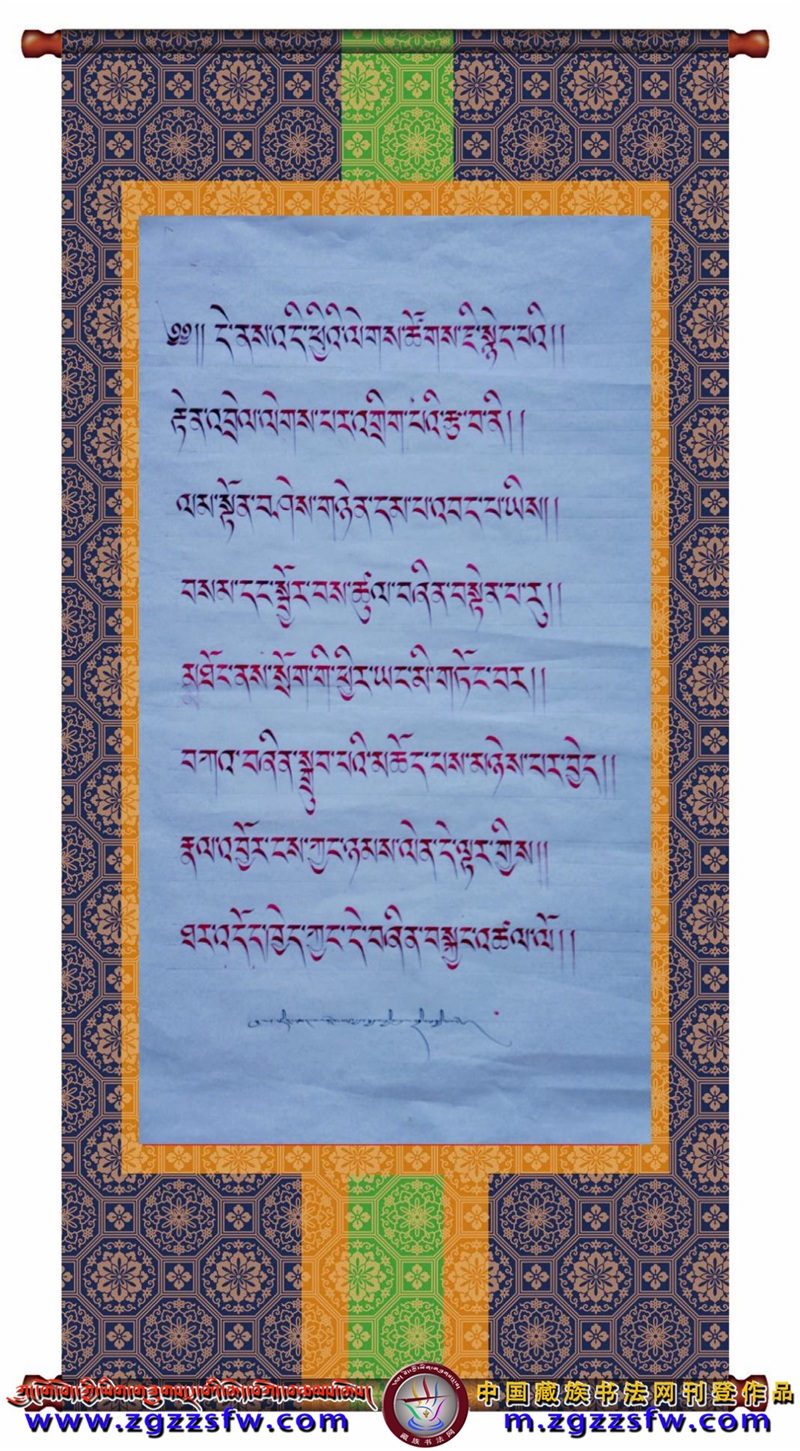 ༄༅།། དེ་ནས་འདི་ཕྱིའི་ལེགས་ཚོགས་ཇི་སྙེད་པའི།།
རྟེན་འབྲེལ་ལེགས་པར་འགྲིག་པའི་རྩ་བ་ནི།།
ལམ་སྟོན་བཤེས་གཉེན་དམ་པ་འབད་པ་ཡིས།།
བསམ་དང་སྦྱོར་བས་ཚུལ་བཞིན་བསྟེན་པ་རུ།།
མཐོང་ནས་སྲོག་གི་ཕྱིར་ཡང་མི་གཏོང་བར།།
བཀའ་བཞིན་སྒྲུབ་པའི་མཆོད་པས་མཉེས་པར་བྱེད།།
རྣལ་འབྱོར་ངས་ཀྱང་ཉམས་ལེན་དེ་ལྟར་གྱིས།།
ཐར་འདོད་ཁྱེད་ཀྱང་དེ་བཞིན་བསྐྱང་འཚལ་ལོ།།
中国藏族书法网刊登作品
www.zgzzsfw.com
藏族书法网
m.zgzzsfw.com